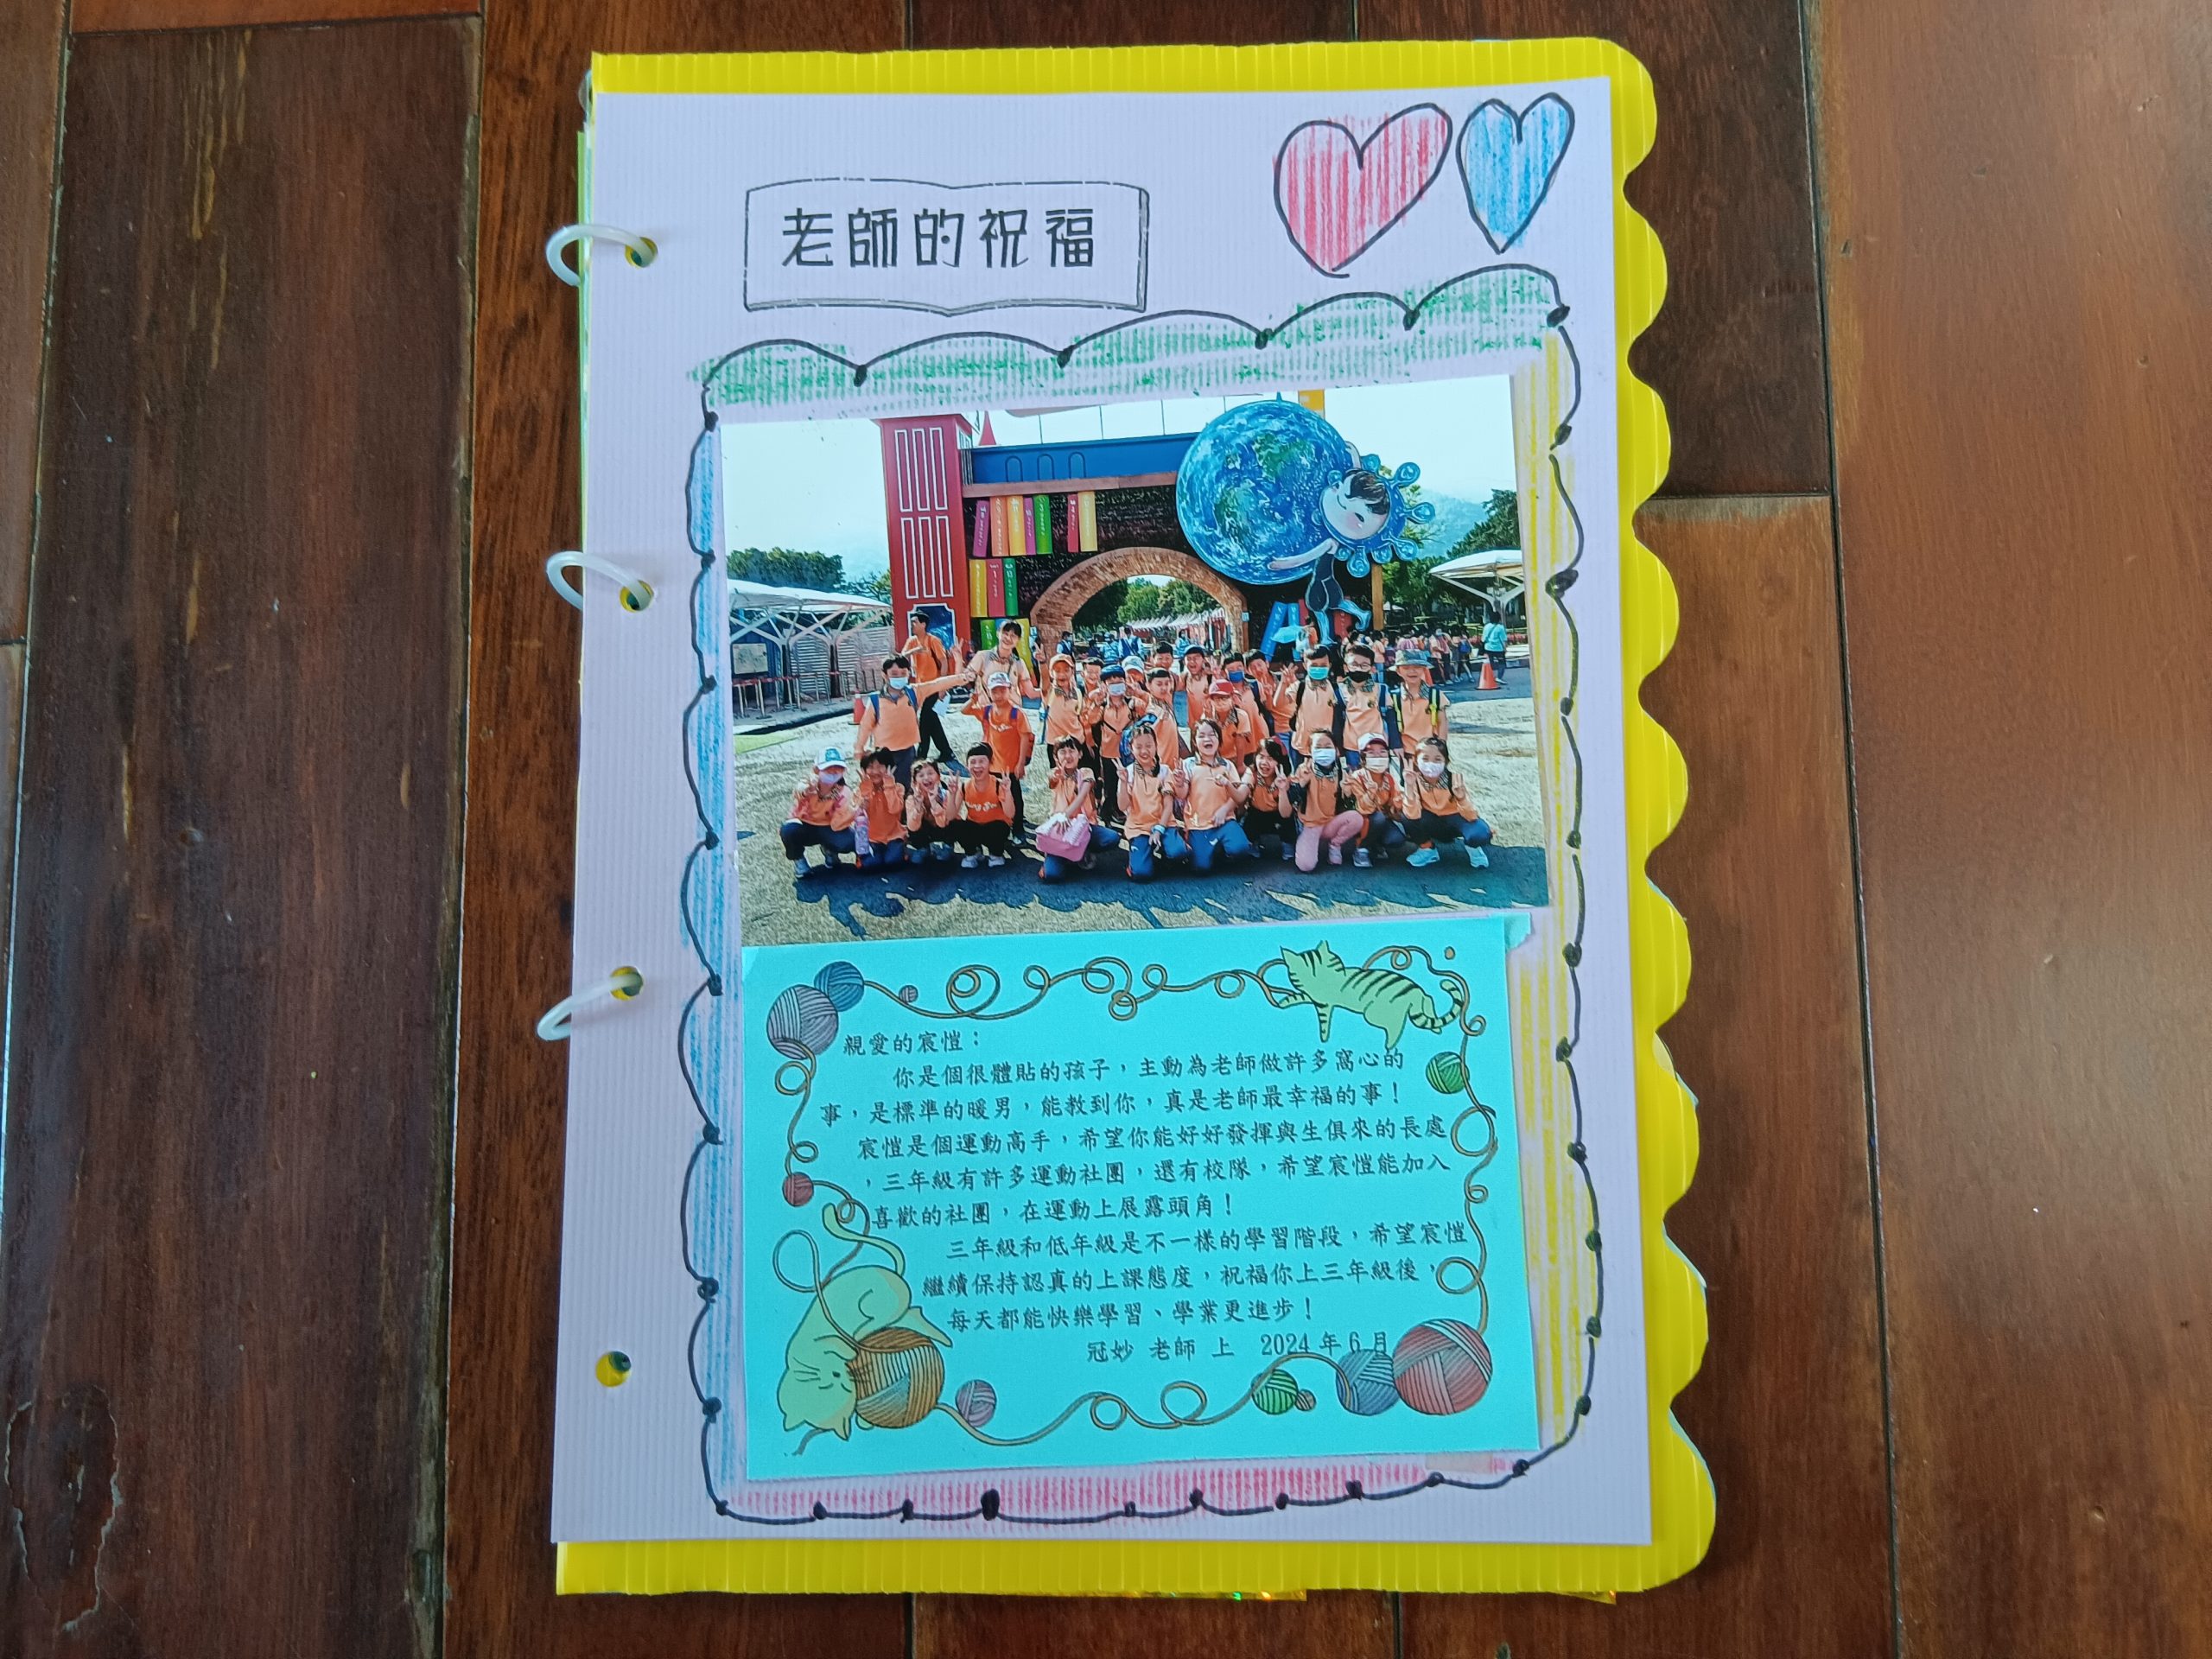 老師的祝福
親愛的宸愷：
你是個很體貼的孩子，主動為老師做許多窩心的
事，是標準的暖男，能教到你，真是老師最幸福的事！
宸愷是個運動高手，希望你能好好發揮與生俱來的長處
，三年級有許多運動社團，還有校隊，希望宸愷能加入
喜歡的社團，在運動上展露頭角！
三年級和低年級是不一樣的學習階段，希望宸愷
繼續保持認真的上課態度，祝福你上三年級後，
每天都能快樂學習、學業更進步！
冠妙 老師 上 2024 年 6 月